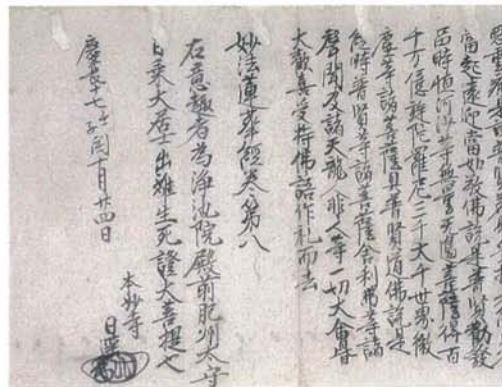 當起遠迎當如敬佛說是普賢勸發
品時恒河沙等無量無邊菩薩得百
千万億旋陀羅尼三千大千世界微
塵等諸菩薩具普賢道佛說是
經時普賢等諸菩薩舍利弗等諸
聲聞及諸天龍人非人等一切大會皆
大歡喜受持佛語作礼而去
妙法蓮華經卷第八
右意趣者為浄池院殿前肥州太守
日乗大居士出離生死證大菩提也
慶長十七年壬子閏十月廿四日
本妙寺
日